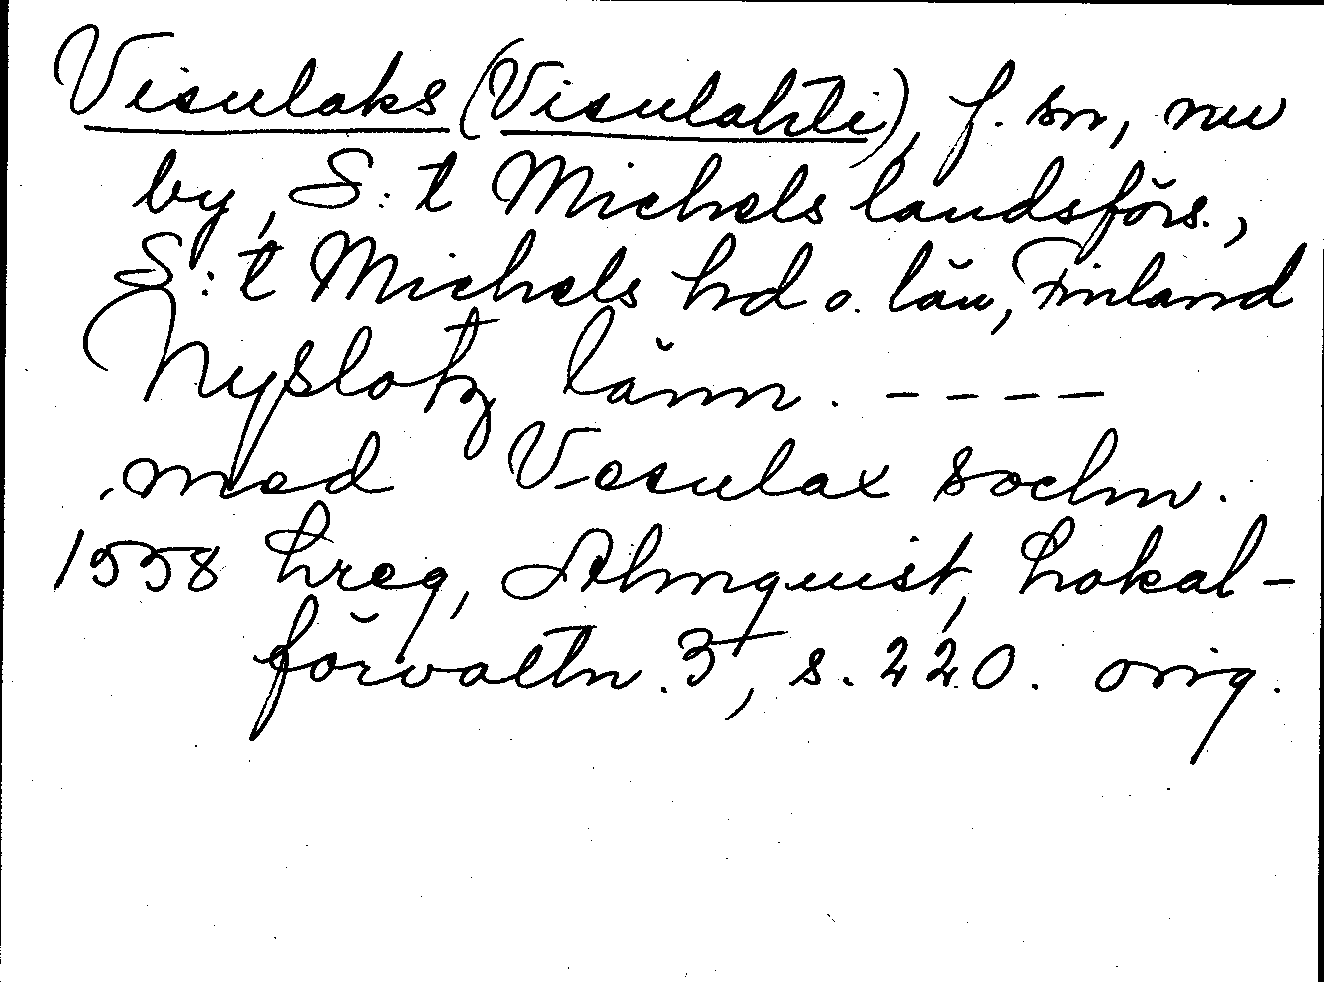 Visulaks (Visulahti), f. sn, nu
by, S:t Michels landsförs.,
S:t Michels hd o. län, Finland
Nyslotz länn. ----
med Vesulax sochn.
1558 Lreg, Almquist, Lokal-
förvaltn. 3, s. 220. orig.